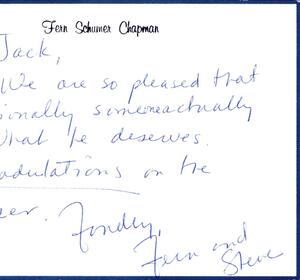 Fern Schumer Chapman
Jack,
We are so pleased that
ionally someone actually
what he deserves.
adulations on the
eer. Fondly,
Fern and
Steve